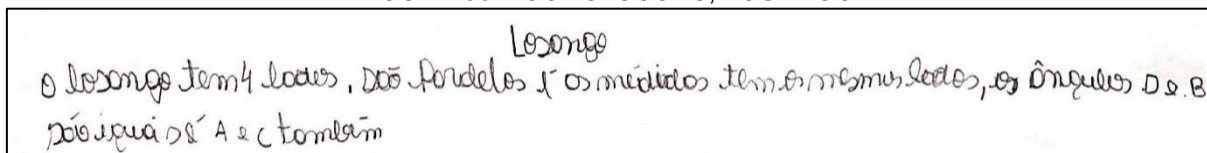 Losongo
O losongo tem 4 lados, são paralelos e os medidos tem os mesmus lados, os ângulos D e B
são iguais e A e C também